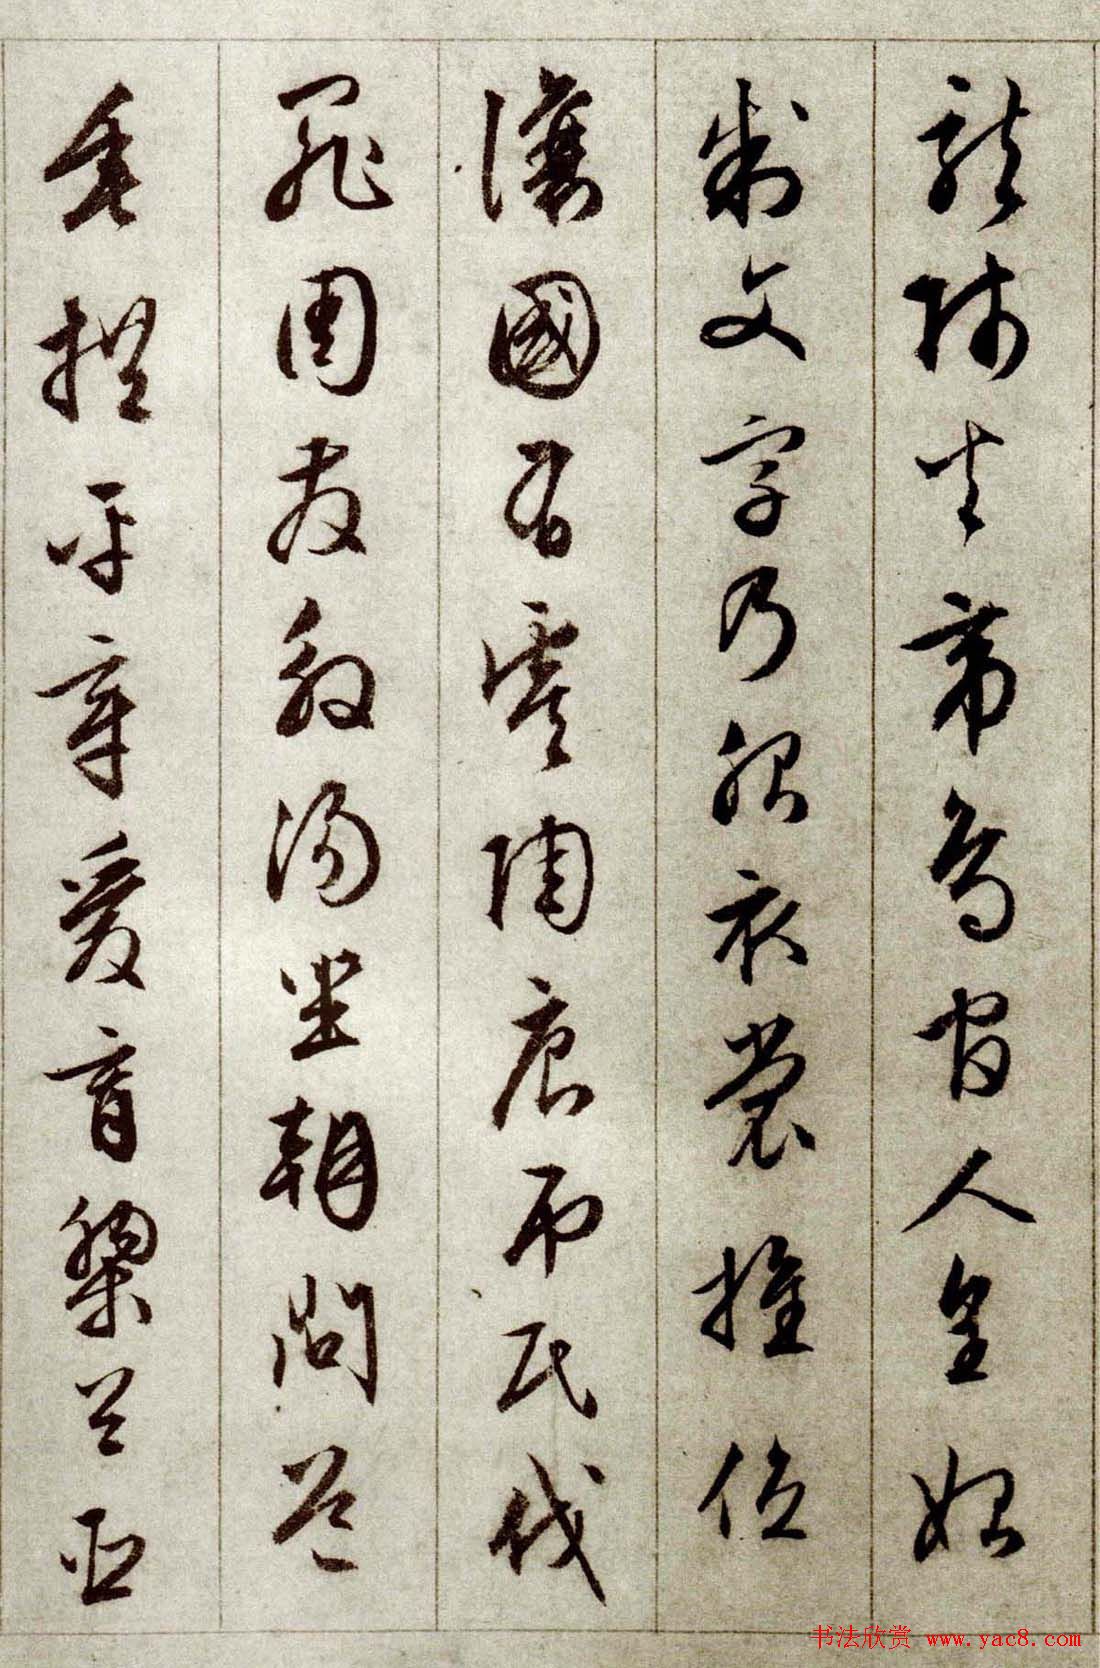 龍師火帝鳥官人皇始
制文字乃服衣裳推位
讓國有虞陶唐弔民伐
罪周發殷湯坐朝問道
垂拱平章愛育黎首臣
书法欣赏 www.yac8.com